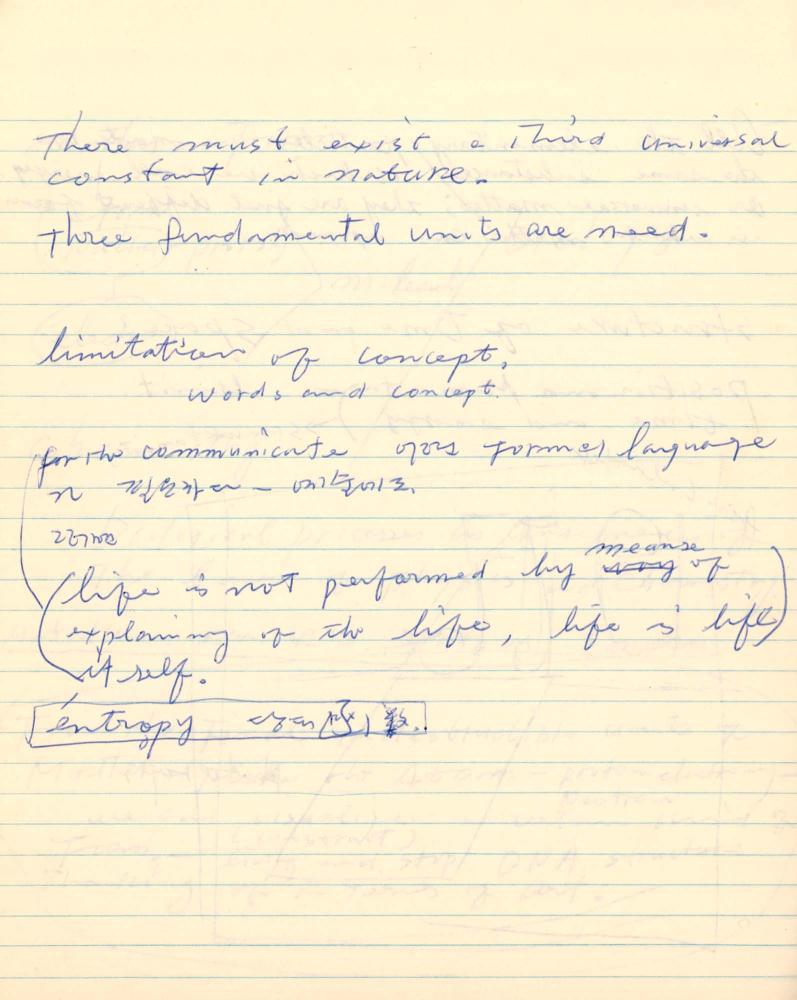 There must exist a Third universal
constant in nature.
Three fundamental units are need.
limitation of concept,
words and concept.
for the communicate formal language
예술에의로.
(life is not performed by meanse of
explaining of the life, life is life)
itself.
entropy